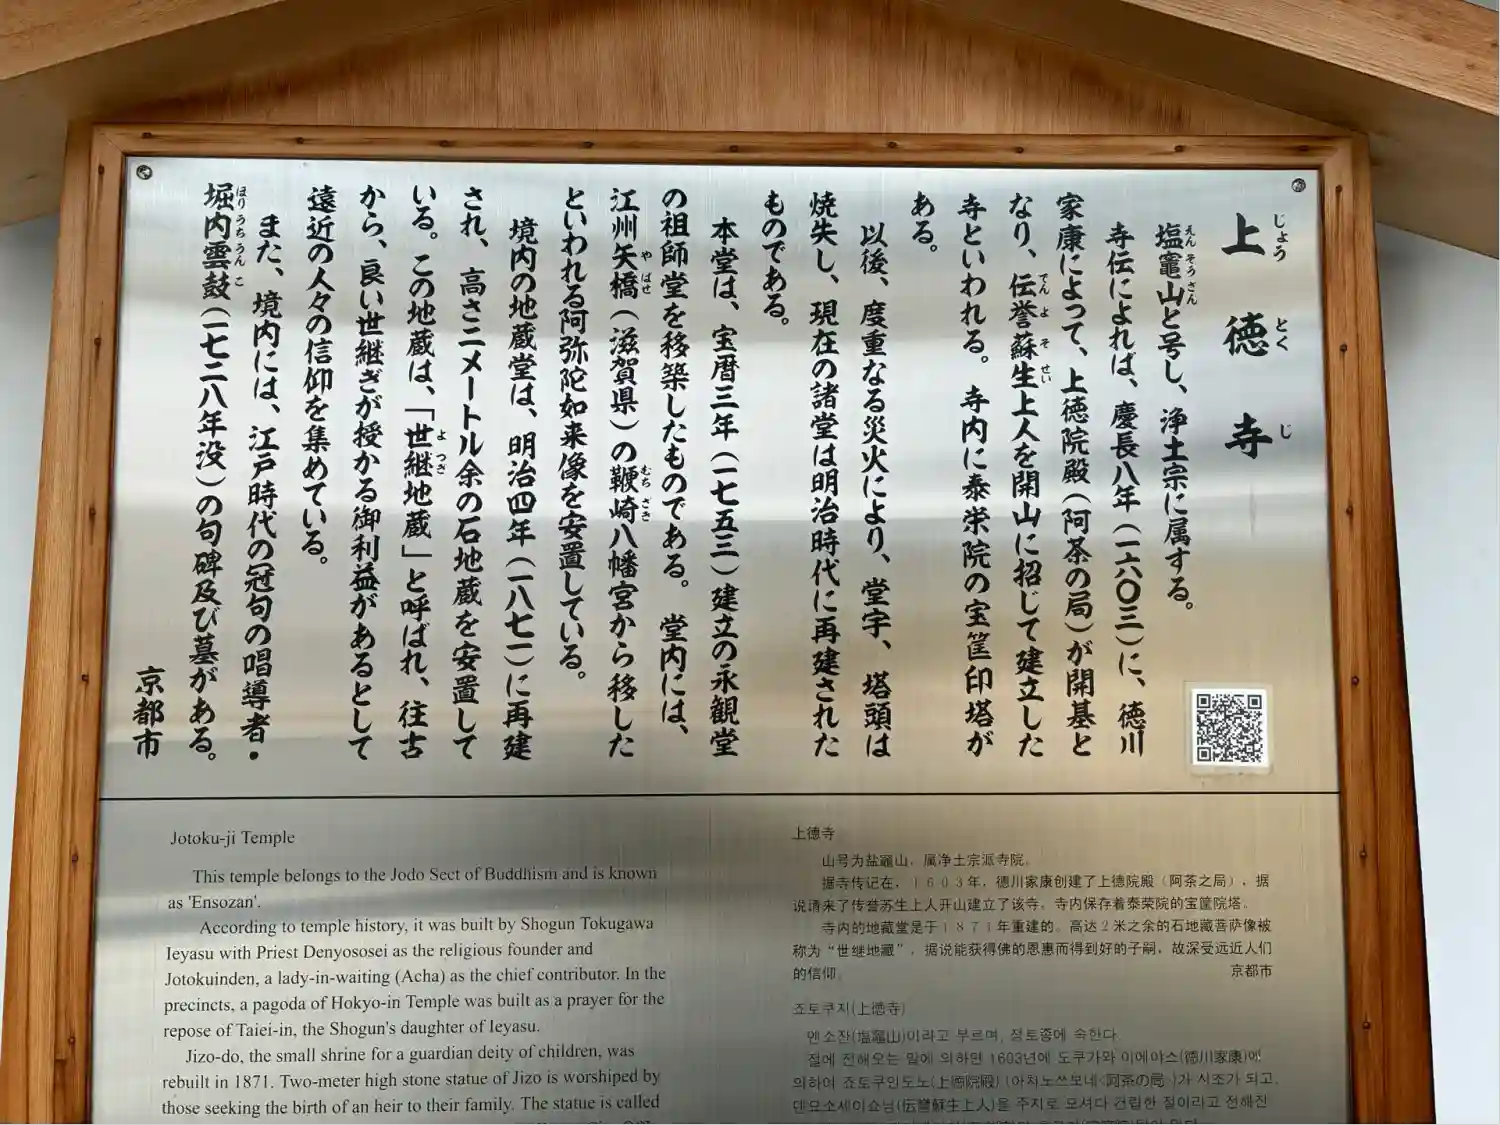 上徳寺
じょうとくじ
塩竈山と号し、浄土宗に属する。
えんそうざん
寺伝によれば、慶長八年(一六〇三)に、徳川
家康によって、上徳院殿(阿茶の局)が開基と
なり、伝誉蘇生上人を開山に招じて建立した
でんよそせい
寺といわれる。寺内に泰栄院の宝筐印塔が
ある。
以後、度重なる災火により、堂宇、塔頭は
焼失し、現在の諸堂は明治時代に再建された
ものである。
本堂は、宝暦三年(一七五三)建立の永観堂
の祖師堂を移築したものである。堂内には、
江州矢橋(滋賀県)の鞭崎八幡宮から移した
やばせ
むちざき
といわれる阿弥陀如来像を安置している。
境内の地蔵堂は、明治四年(一八七一)に再建
され、高さ二メートル余の石地蔵を安置して
いる。この地蔵は、「世継地蔵」と呼ばれ、往古
よつぎ
から、良い世継ぎが授かる御利益があるとして
遠近の人々の信仰を集めている。
また、境内には、江戸時代の冠句の唱導者・
堀内雲鼓(一七二八年没)の句碑及び墓がある。
ほりうちうんこ
京都市
Jotoku-ji Temple
This temple belongs to the Jodo Sect of Buddhism and is known
as 'Ensozan'.
According to temple history, it was built by Shogun Tokugawa
Ieyasu with Priest Denyososei as the religious founder and
Jotokuinden, a lady-in-waiting (Acha) as the chief contributor. In the
precincts, a pagoda of Hokyo-in Temple was built as a prayer for the
repose of Taiei-in, the Shogun's daughter of Ieyasu.
Jizo-do, the small shrine for a guardian deity of children, was
rebuilt in 1871. Two-meter high stone statue of Jizo is worshiped by
those seeking the birth of an heir to their family. The statue is called
上德寺
山号为盐竈山，属净土宗派寺院。
据寺传记在，1603年，德川家康创建了上德院殿（阿茶之局），据
说请来了传誉苏生上人开山建立了该寺。寺内保存着泰荣院的宝箧院塔。
寺内的地藏堂是于1871年重建的。高达2米之余的石地藏菩萨像被
称为“世继地藏”，据说能获得佛的恩惠而得到好的子嗣，故深受远近人们
的信仰。
京都市
죠토쿠지(上徳寺)
엔소잔(塩竈山)이라고 부르며, 정토종에 속한다.
절에 전해오는 말에 의하면 1603년에 도쿠가와 이에야스(徳川家康)에
의하여 죠토쿠인도노(上徳院殿) (아차노쓰보네<阿茶の局>)가 시조가 되고,
덴요소세이쇼닌(伝誉蘇生上人)을 주지로 모셔다 건립한 절이라고 전해진